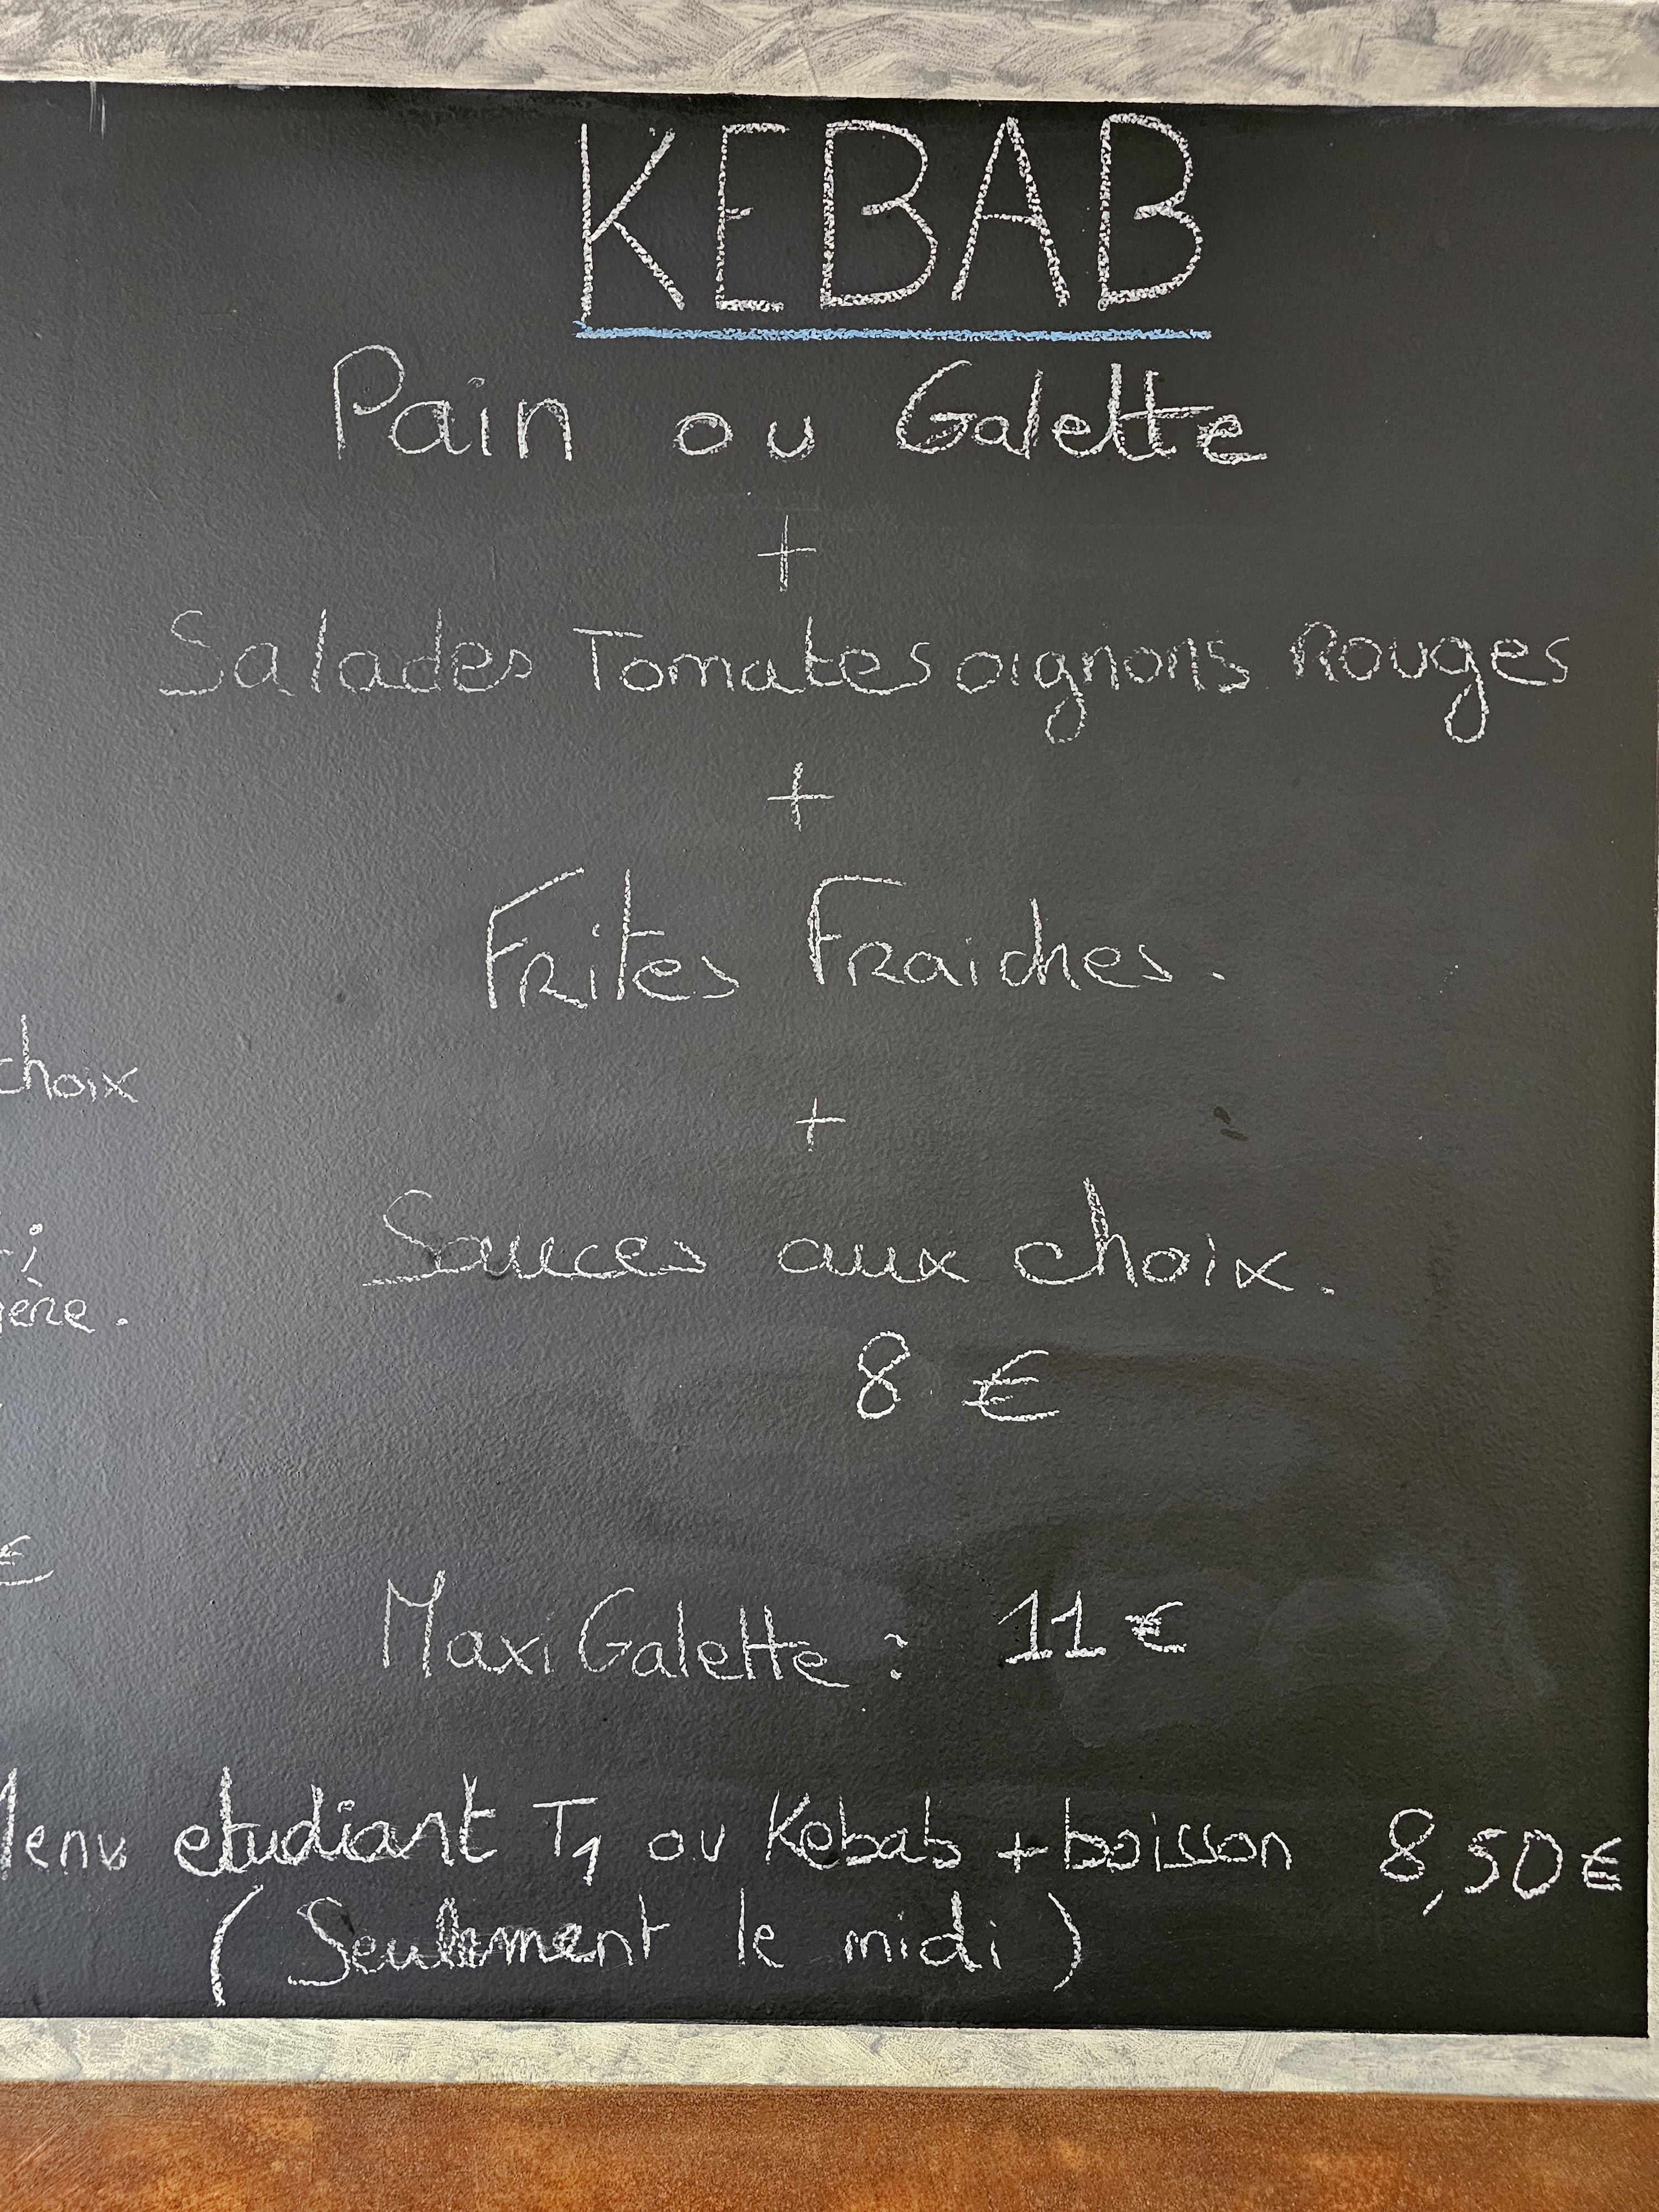 KEBAB
Pain ou Galette
+
Salades Tomates oignons Rouges
+
Frites Fraiches.
+
choix
Sauces aux choix.
8 €
€
Maxi Galette : 11 €
Menu etudiant T1 ou Kebab + boisson 8,50 €
(Seulement le midi)